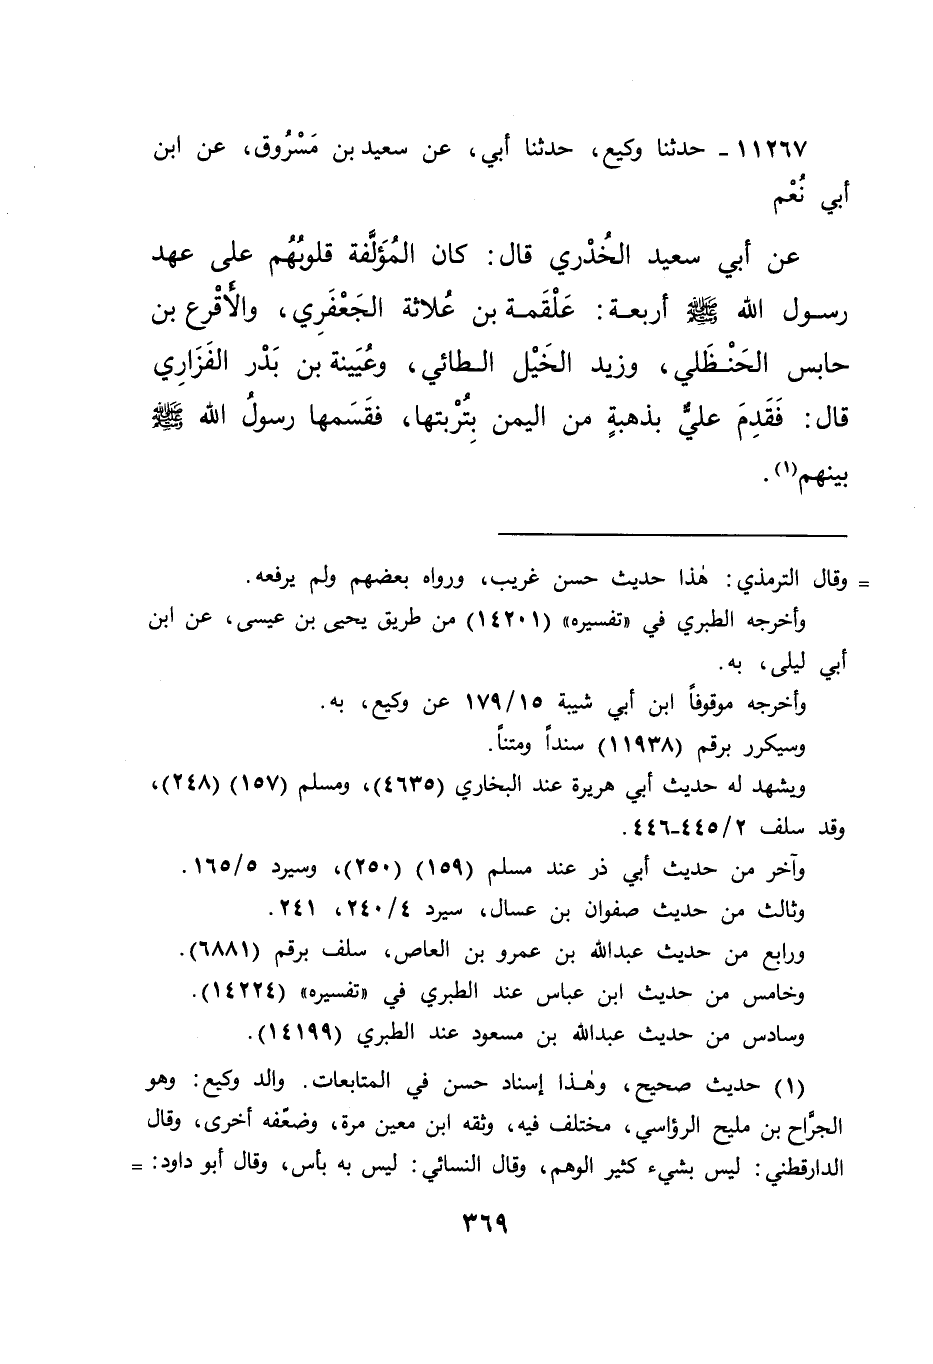 ١١٢٦٧ - حدثنا وكيع، حدثنا أبي، عن سعيد بن مَسْرُوق، عن ابن
أبي نُعْم
عن أبي سعيد الخُدْري قال: كان المُؤَلَّفة قلوبُهُم على عهد
رسول الله ﷺ أربعة: عَلْقمة بن عُلاثة الجَعْفَرِي، والأَقْرع بن
حابس الحَنْظَلي، وزيد الخَيْل الطائي، وعُيَينة بن بَدْر الفَزَاري
قال: فَقَدِمَ عليٌّ بذهبةٍ من اليمن بِتُرْبتها، فقَسَمها رسولُ الله ﷺ
بينهم(١).
= وقال الترمذي: هٰذا حديث حسن غريب، ورواه بعضهم ولم يرفعه.
وأخرجه الطبري في «تفسيره» (١٤٢٠١) من طريق يحيى بن عيسى، عن ابن
أبي ليلى، به.
وأخرجه موقوفاً ابن أبي شيبة ١٧٩/١٥ عن وكيع، به.
وسيكرر برقم (١١٩٣٨) سنداً ومتناً.
ويشهد له حديث أبي هريرة عند البخاري (٤٦٣٥)، ومسلم (١٥٧) (٢٤٨)،
وقد سلف ٤٤٥/٢-٤٤٦.
وآخر من حديث أبي ذر عند مسلم (١٥٩) (٢٥٠)، وسيرد ١٦٥/٥.
وثالث من حديث صفوان بن عسال، سيرد ٢٤٠/٤، ٢٤١.
ورابع من حديث عبدالله بن عمرو بن العاص، سلف برقم (٦٨٨١).
وخامس من حديث ابن عباس عند الطبري في «تفسيره» (١٤٢٢٤).
وسادس من حديث عبدالله بن مسعود عند الطبري (١٤١٩٩).
(١) حديث صحيح، وهٰذا إسناد حسن في المتابعات. والد وكيع: وهو
الجرَّاح بن مليح الرؤاسي، مختلف فيه، وثقه ابن معين مرة، وضعَّفه أخرى، وقال
الدارقطني: ليس بشيء كثير الوهم، وقال النسائي: ليس به بأس، وقال أبو داود: =
٣٦٩